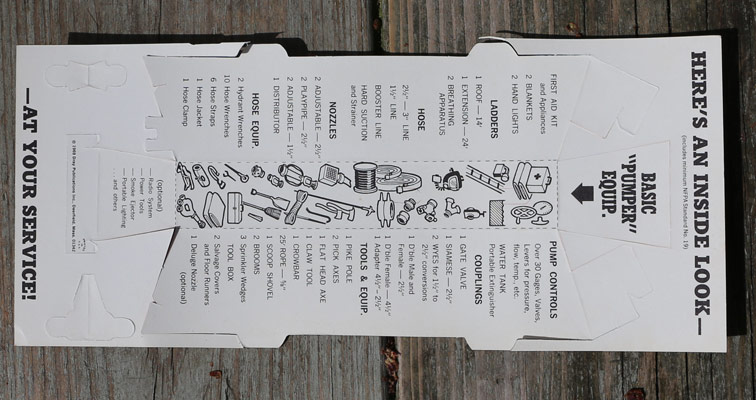 HERE'S AN INSIDE LOOK—
(includes minimum NFPA Standard No. 19)
BASIC
"PUMPER"
EQUIP.
FIRST AID KIT
and Appliances
2 BLANKETS
2 HAND LIGHTS
LADDERS
1 ROOF — 14'
1 EXTENSION — 24'
2 BREATHING
APPARATUS
HOSE
2½" — 3" LINE
1½" LINE
BOOSTER LINE
HARD SUCTION
and Strainer
NOZZLES
2 ADJUSTABLE — 2½"
2 PLAYPIPE — 2½"
2 ADJUSTABLE — 1½"
1 DISTRIBUTOR
HOSE EQUIP.
2 Hydrant Wrenches
10 Hose Wrenches
6 Hose Straps
1 Hose Jacket
1 Hose Clamp
PUMP CONTROLS
Over 30 Gages, Valves,
Levers for pressure,
flow, temp., etc.
WATER TANK
Portable Extinguisher
COUPLINGS
1 GATE VALVE
1 SIAMESE — 2½"
2 WYES for 1½" to
2½" conversions
1 D'ble Male and
Female — 2½"
1 D'ble Female — 4½"
Adapter 4½" – 2½"
TOOLS & EQUIP.
1 PIKE POLE
2 PICK AXES
1 FLAT HEAD AXE
1 CLAW TOOL
1 CROWBAR
25' ROPE — ⅝"
1 SCOOP SHOVEL
2 BROOMS
3 Sprinkler Wedges
TOOL BOX
2 Salvage Covers
and Floor Runners
1 Deluge Nozzle
(optional)
(optional)
— Radio System
— Power Tools
— Smoke Ejector
— Portable Lighting
. . . and others
—AT YOUR SERVICE!